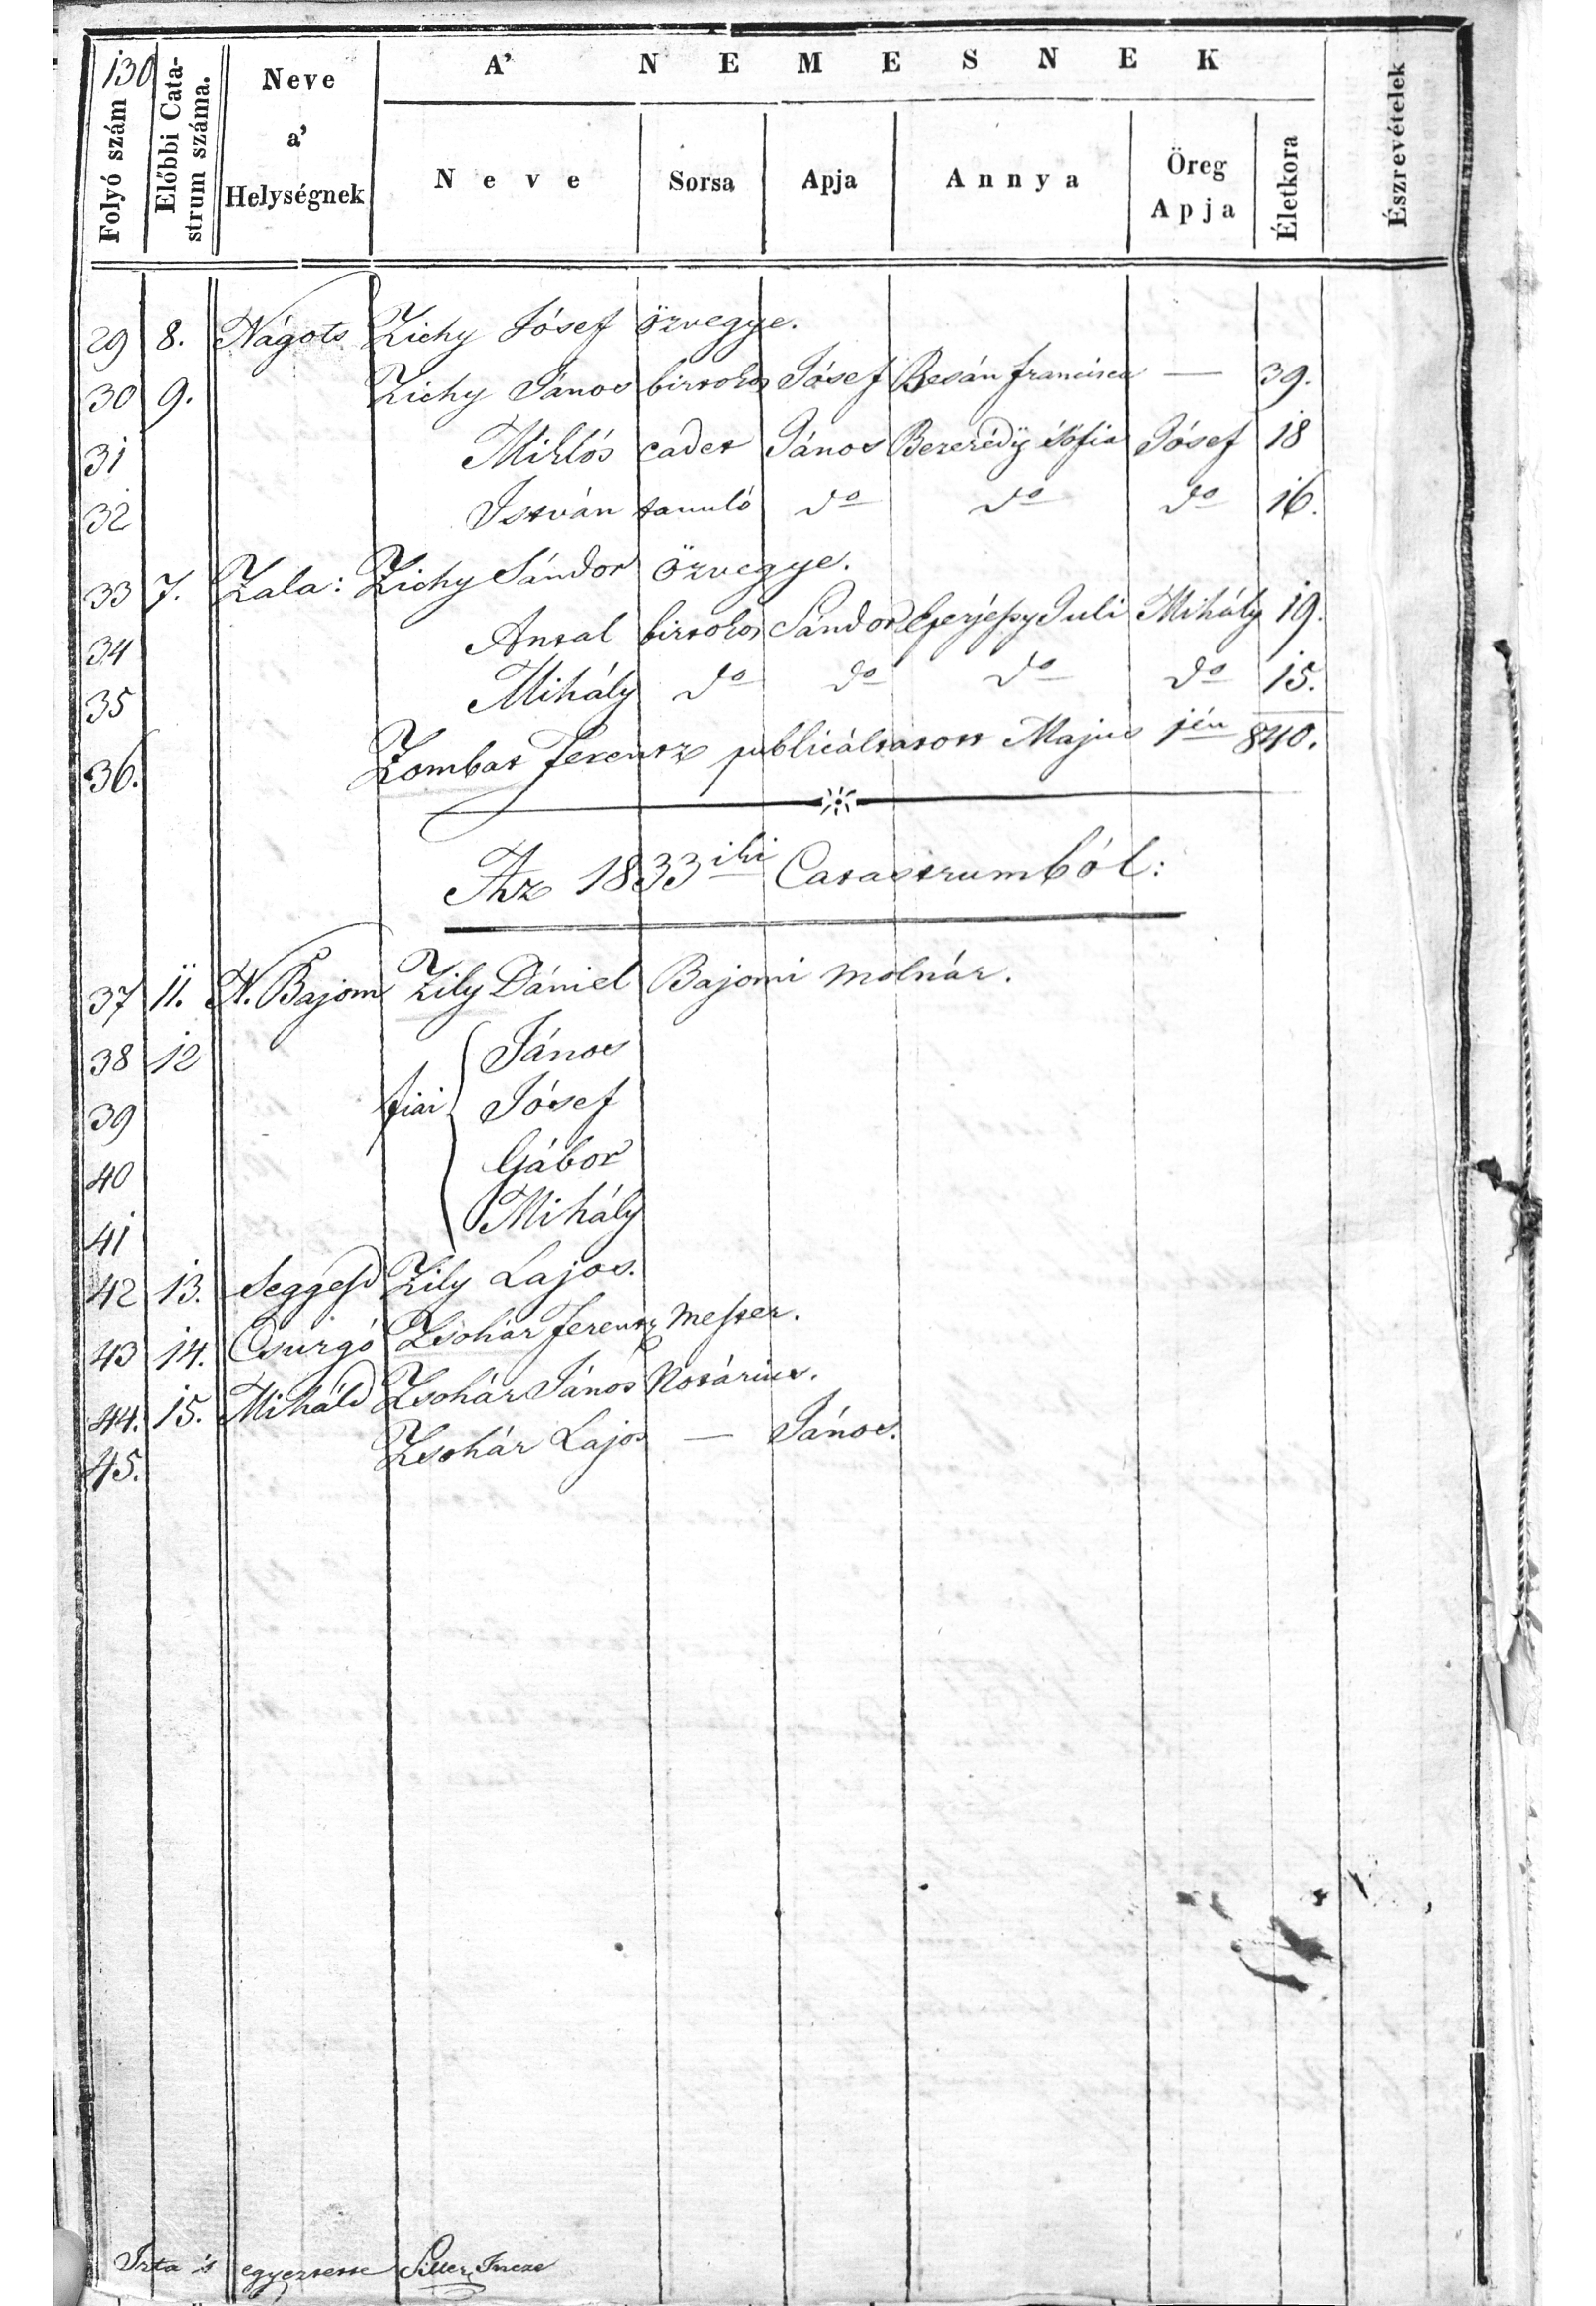 130
A' NEMESNEK
Folyó szám
Előbbi Catastrum száma.
Neve a' Helységnek
Neve
Sorsa
Apja
Annya
Öreg Apja
Életkora
Észrevételek
29 8. Nágots Zichy Jósef özvegye.
30 9. Zichy János birtokos Jósef Besán francisca — 39.
31 Miklós cadet János Bezerédÿ Sófia Jósef 18
32 István tanuló do do do 16.
33 7. Zala: Zichy Sándor özvegye.
34 Antal birtokos Sándor Juli Mihály 19.
35 Mihály do do do do 15.
36. Zombat Ferentz publicáltatott Majus 1jén 840.
Az 1833iki Catastrumból:
37 11. N. Bajom Zily Dániel Bajomi molnár.
38 12 János
fiai
39 Jósef
40 Gábor
41 Mihály
42 13. Seggesd Zily Lajos.
43 14. Csurgó Zsohár Ferentz mester.
44. 15. Miháld Zsohár János Notárius.
45. Zsohár Lajos — János.
Irta 's egyeztette Siller Incze